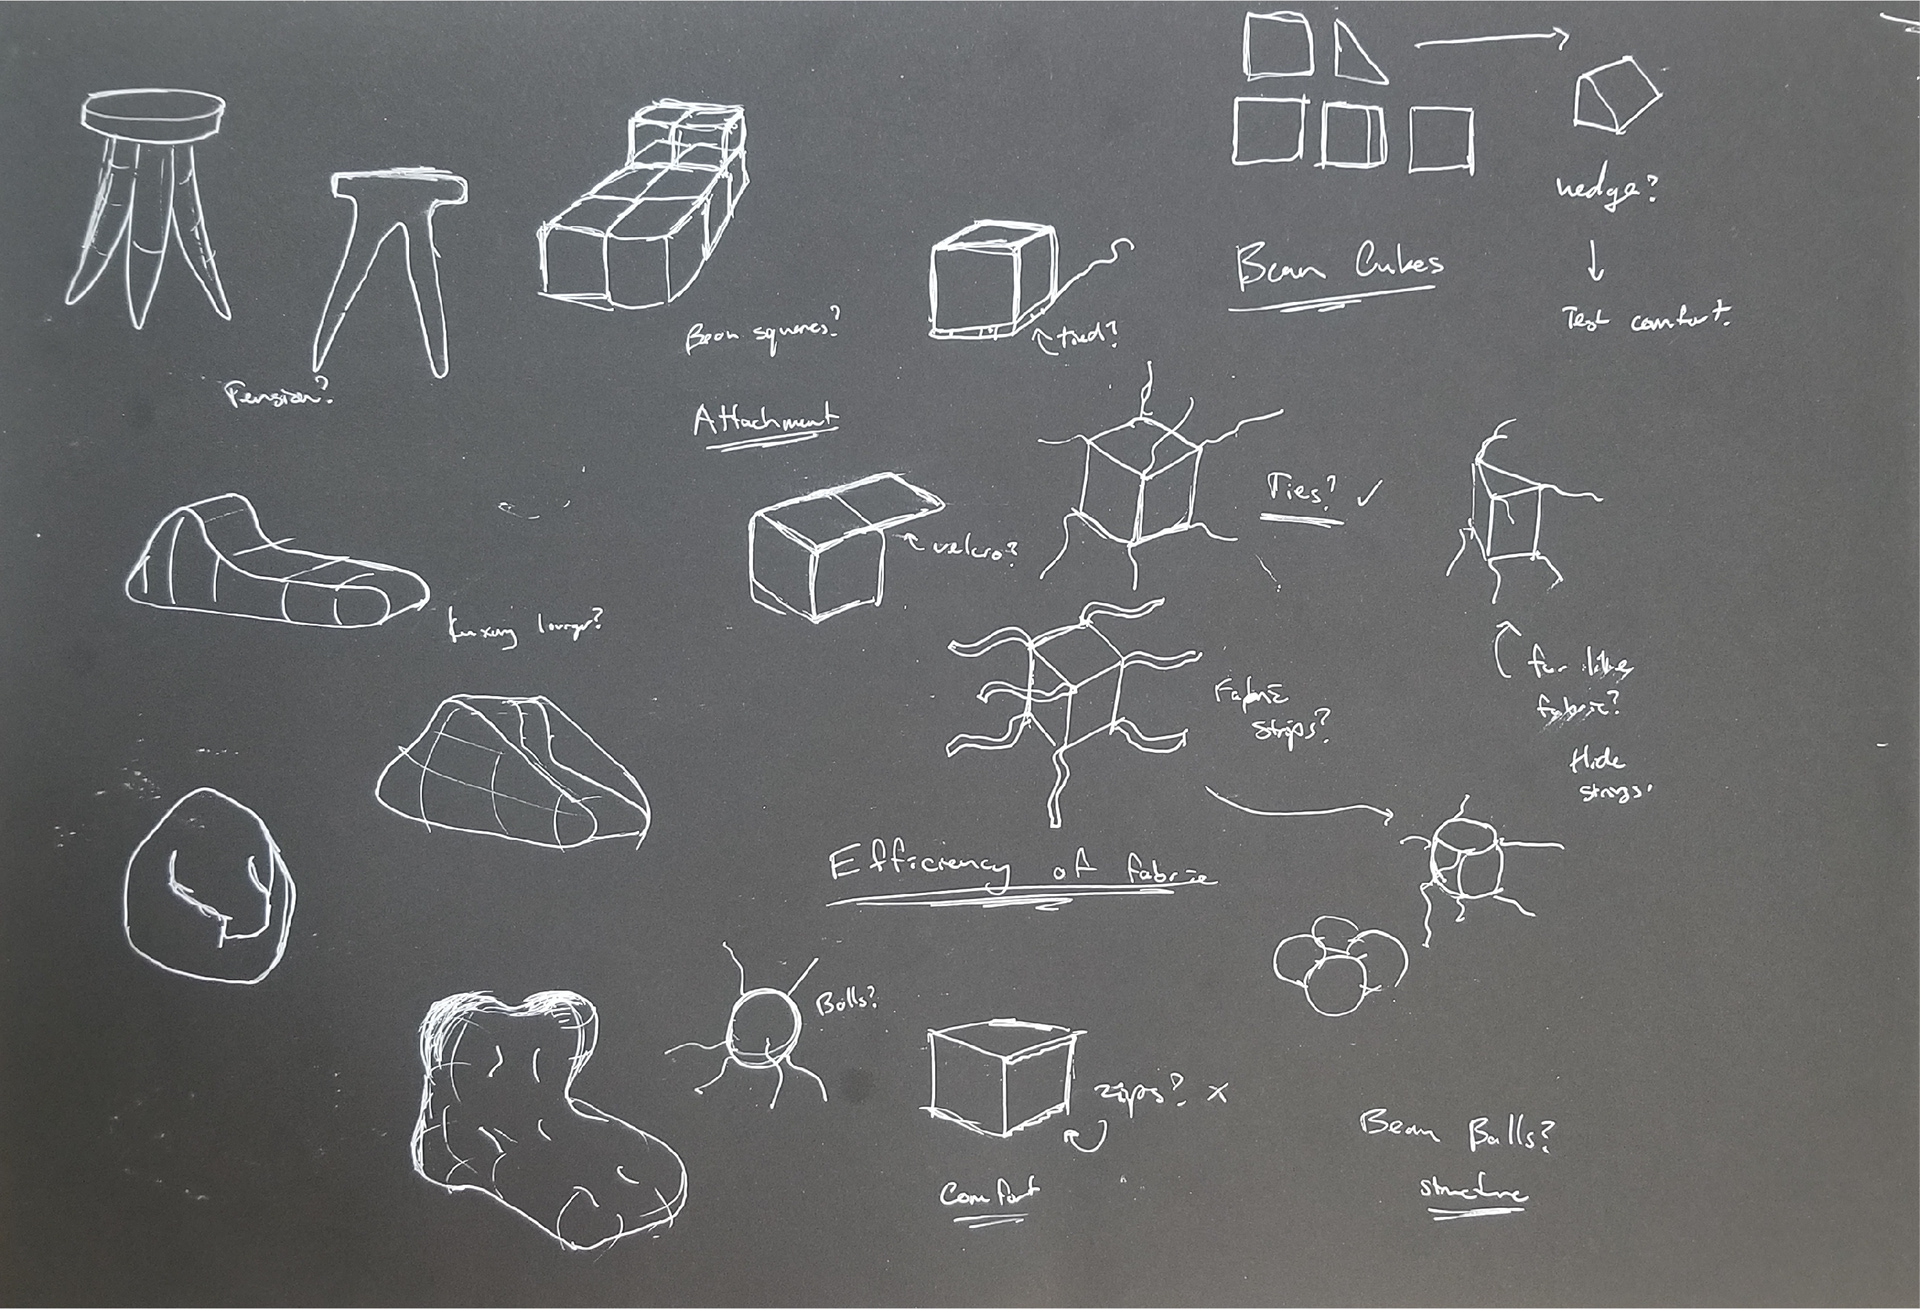 wedge?
Bean Cubes
Test comfort.
Bean squares?
tied?
Tension?
Attachment
Ties? ✓
velcro?
lounger?
for like
fabric?
Hide
strings.
Fabric
strips?
Efficiency of fabric
Balls?
zips? x
Comfort
Bean Balls?
structure